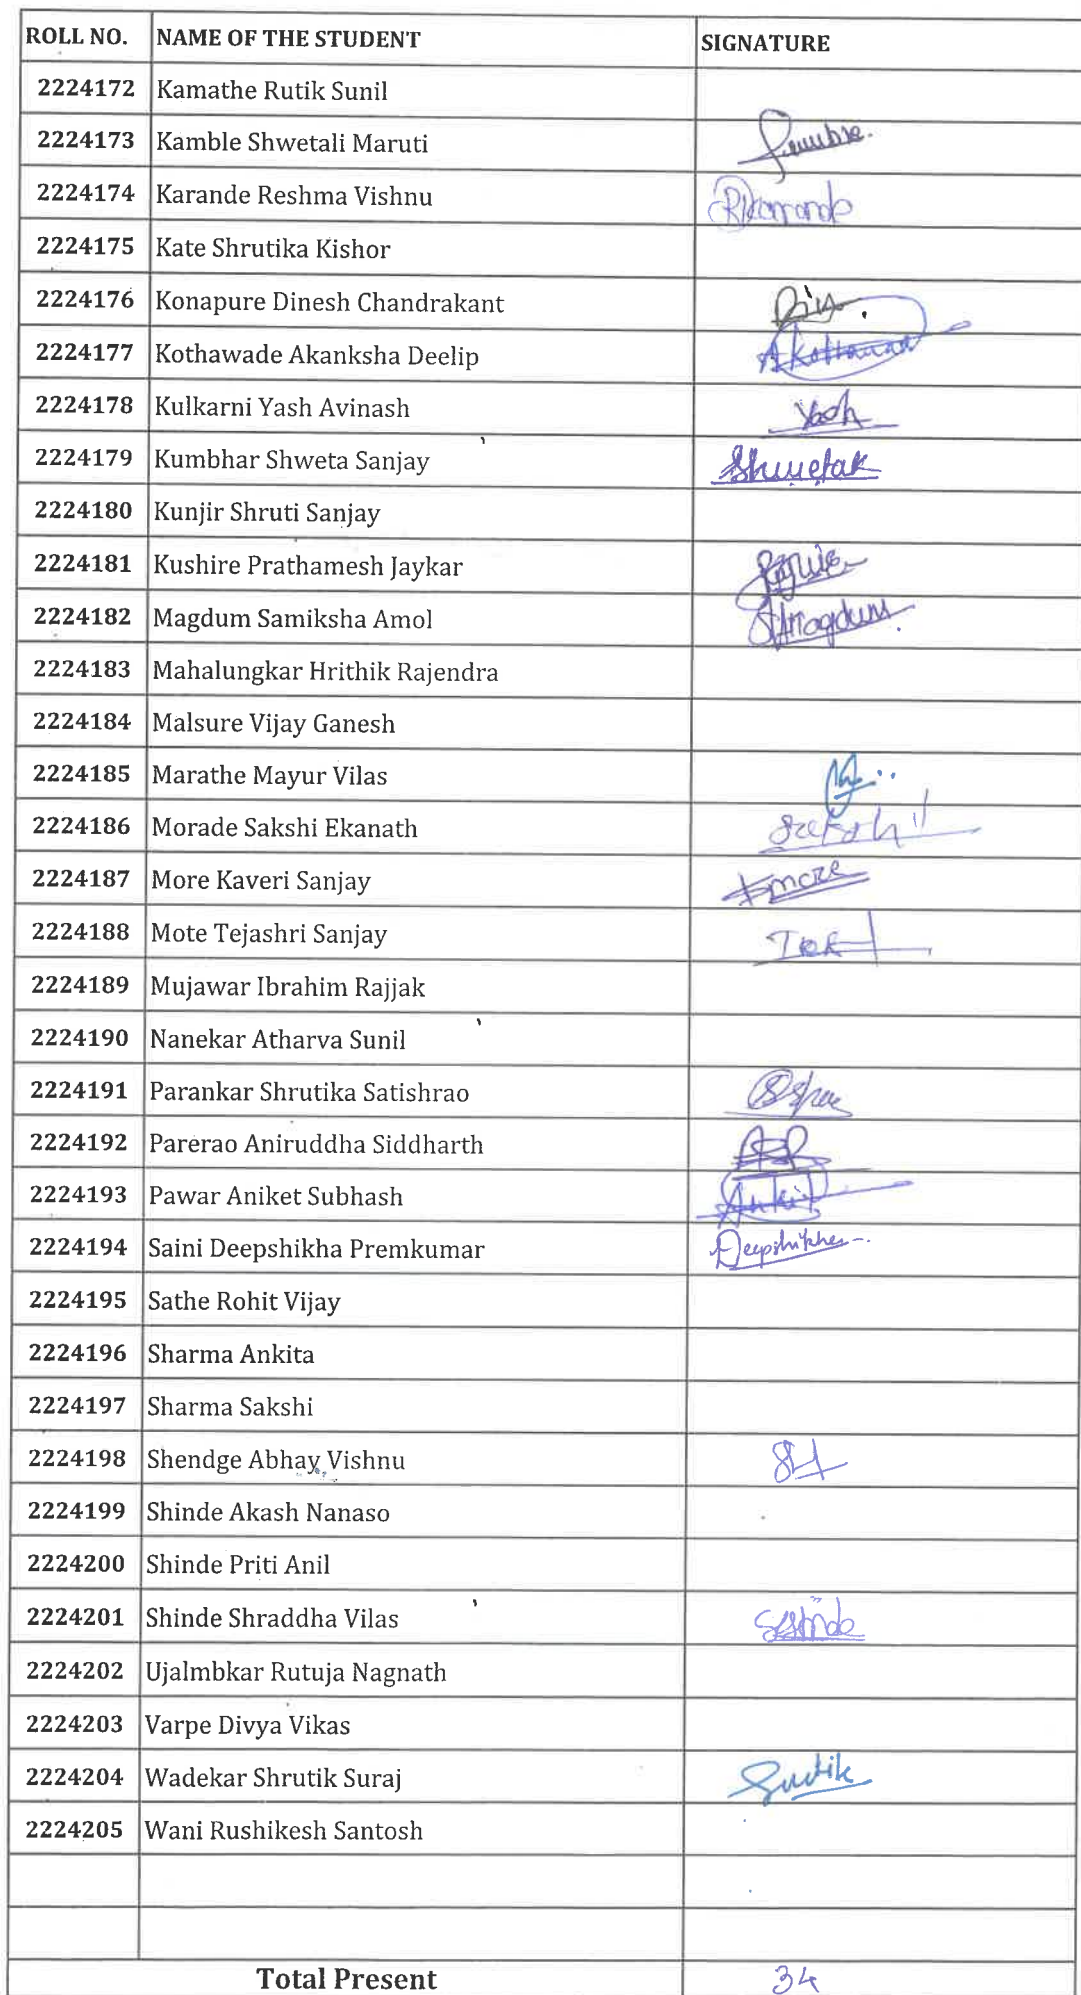 ROLL NO. NAME OF THE STUDENT SIGNATURE
2224172 Kamathe Rutik Sunil
2224173 Kamble Shwetali Maruti
2224174 Karande Reshma Vishnu RKarande
2224175 Kate Shrutika Kishor
2224176 Konapure Dinesh Chandrakant
2224177 Kothawade Akanksha Deelip
2224178 Kulkarni Yash Avinash Yash
2224179 Kumbhar Shweta Sanjay Shwetak
2224180 Kunjir Shruti Sanjay
2224181 Kushire Prathamesh Jaykar
2224182 Magdum Samiksha Amol SAMagdum
2224183 Mahalungkar Hrithik Rajendra
2224184 Malsure Vijay Ganesh
2224185 Marathe Mayur Vilas
2224186 Morade Sakshi Ekanath
2224187 More Kaveri Sanjay Kmore
2224188 Mote Tejashri Sanjay
2224189 Mujawar Ibrahim Rajjak
2224190 Nanekar Atharva Sunil
2224191 Parankar Shrutika Satishrao
2224192 Parerao Aniruddha Siddharth
2224193 Pawar Aniket Subhash
2224194 Saini Deepshikha Premkumar Deepshikha
2224195 Sathe Rohit Vijay
2224196 Sharma Ankita
2224197 Sharma Sakshi
2224198 Shendge Abhay Vishnu
2224199 Shinde Akash Nanaso
2224200 Shinde Priti Anil
2224201 Shinde Shraddha Vilas
2224202 Ujalmbkar Rutuja Nagnath
2224203 Varpe Divya Vikas
2224204 Wadekar Shrutik Suraj
2224205 Wani Rushikesh Santosh
Total Present 34